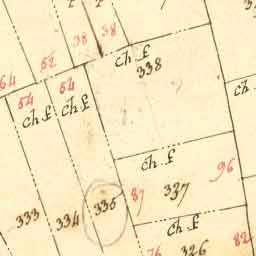 38 38
52 ch f
338
64 54
54 ch f ch
ch f
ch f
96
335 87 337
333 334
ch f
76 326 82